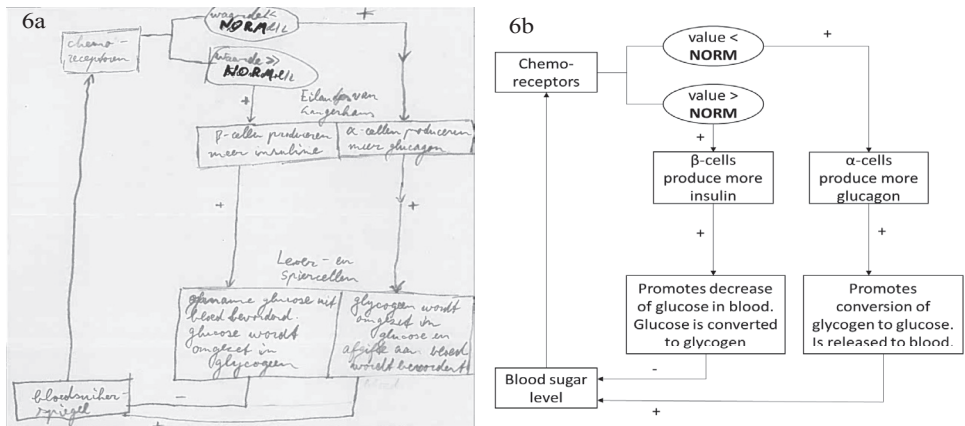 6a
waarde <
NORM
+
chemo-
receptoren
waarde >
NORM
+
Eilandjes van
Langerhans
β-cellen produceren
meer insuline
α-cellen produceren
meer glucagon
+
+
Lever- en
spiercellen
glucose uit
bloed bevorderd.
glucose wordt
omgezet in
glycogeen
glycogeen wordt
omgezet in
glucose en
afgifte aan bloed
wordt bevorderd
bloedsuiker-
spiegel
-
+
6b
value <
NORM
+
Chemo-
receptors
value >
NORM
+
β-cells
produce more
insulin
α-cells
produce more
glucagon
+
+
Promotes decrease
of glucose in blood.
Glucose is converted
to glycogen
Promotes
conversion of
glycogen to glucose.
Is released to blood.
-
Blood sugar
level
+